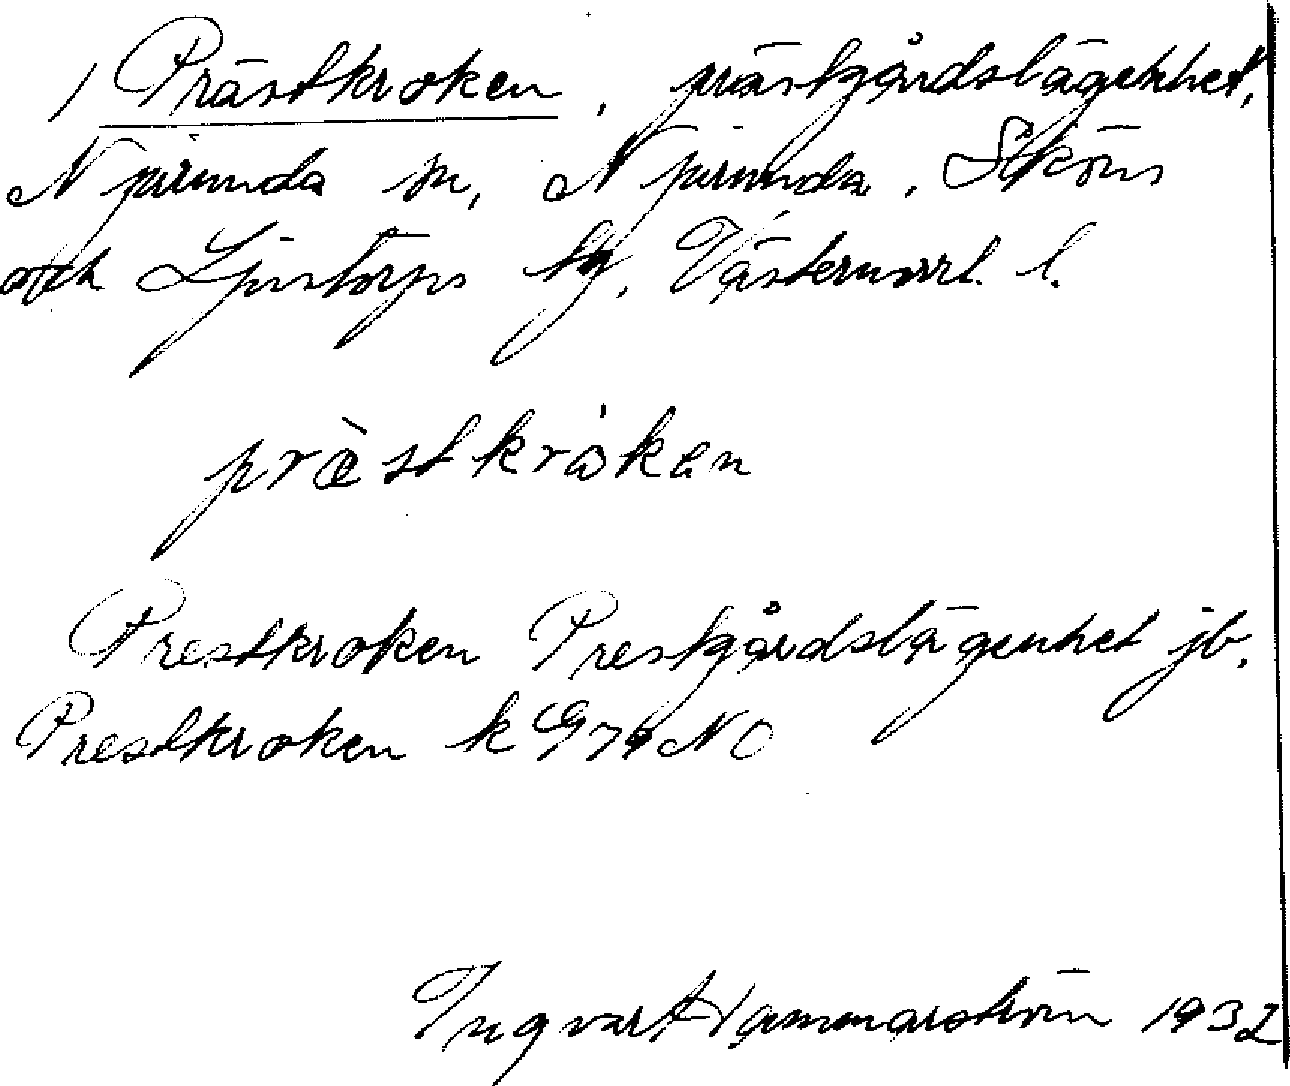 / Prästkroken, prästgårdslägenhet,
Njurunda sn, Njurunda, Sköns
och Ljustorps tg, Västernorrl. l.
prὲstkrȯken
Prestkroken Prestgårdslägenhet jb.
Prestkroken k G76 NO
Ingvar Hammarström 1932